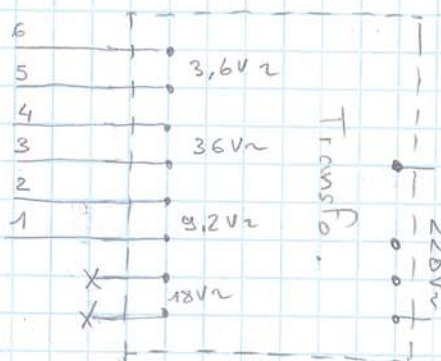 6
5
4
3
2
1
3,6V~
36V~
9,2V~
18V~
Transfo.
220V~